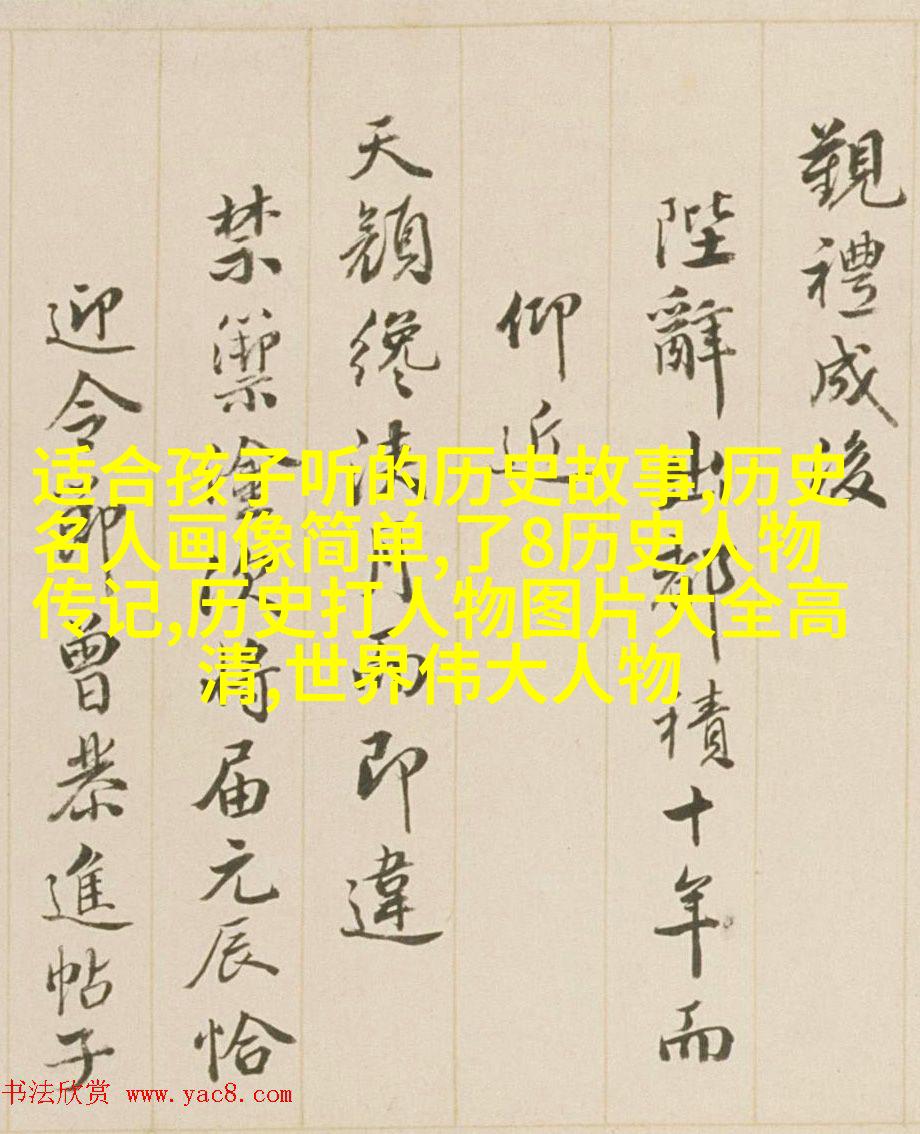 覲禮成後
陛辭出都積十年而
仰近
天顔纔月而即違
禁籞將届元辰恰
迎令節曾恭進帖子
适合孩子听的历史故事,历史
名人画像简单,了8历史人物
传记,历史打人物图片大全高
清,世界伟大人物
书法欣赏 www.yac8.com